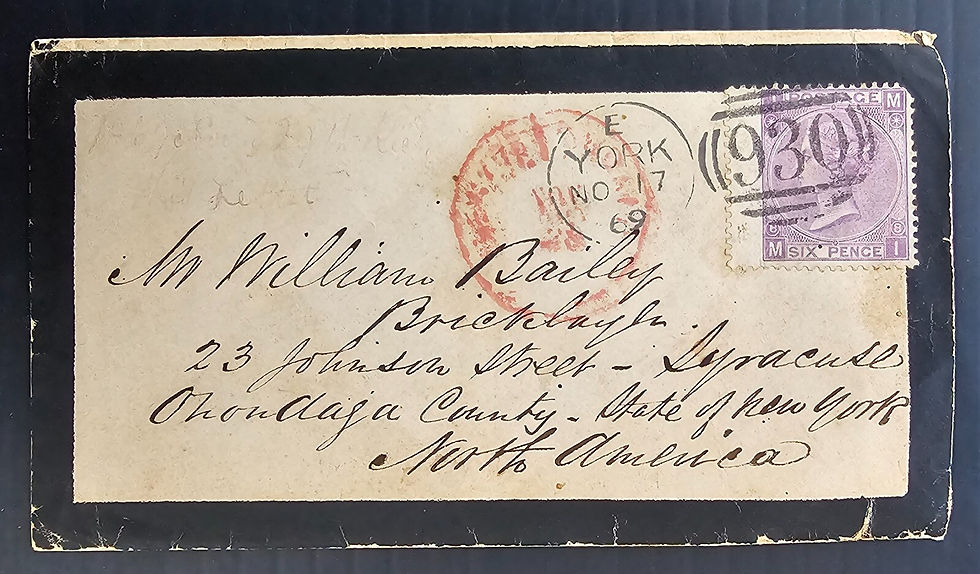 E
YORK
NO 17
69
930
POSTAGE M
8 8
M SIX PENCE I
Mr William Bailey
Bricklayer.
23 Johnson Street - Syracuse
Onondaga County - State of New York
North America